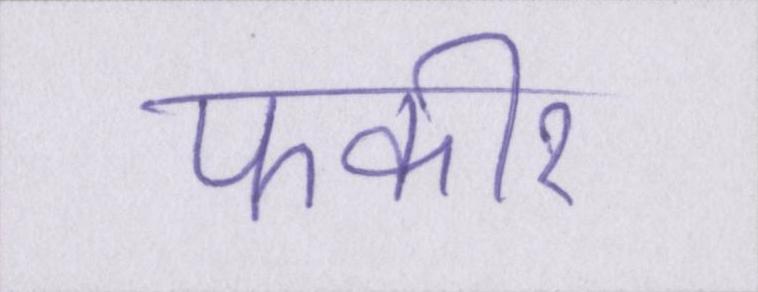 फकीर